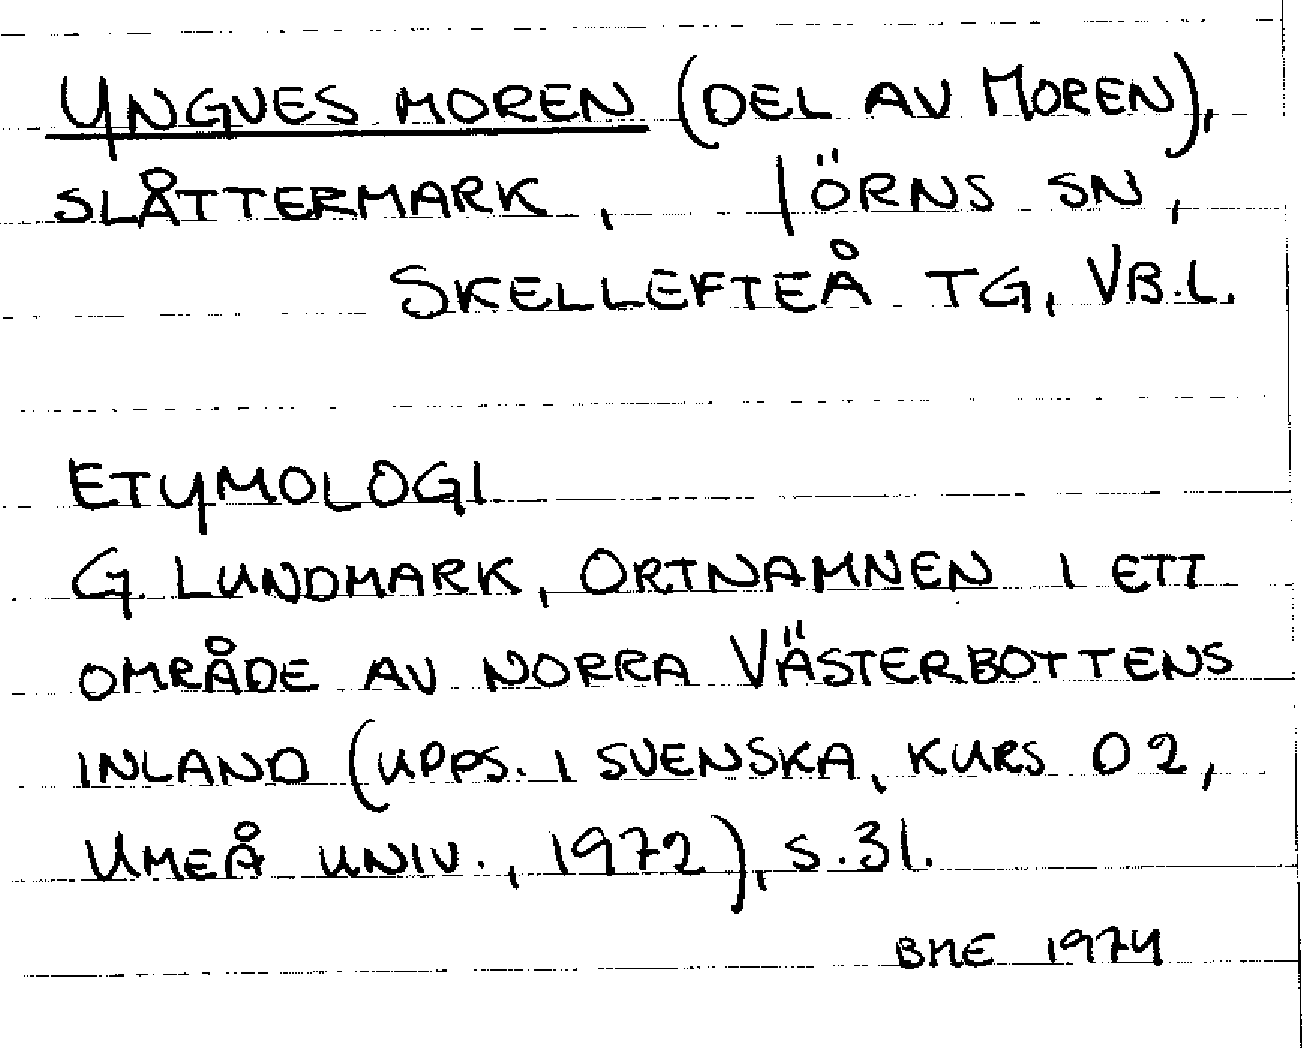 YNGVES MOREN (DEL AV MOREN),
SLÅTTERMARK, JÖRNS SN,
SKELLEFTEÅ TG, VB.L.
ETYMOLOGI
G. LUNDMARK, ORTNAMNEN I ETT
OMRÅDE AV NORRA VÄSTERBOTTENS
INLAND (UPPS. I SVENSKA, KURS 02,
UMEÅ UNIV., 1972), S.31.
BME 1974